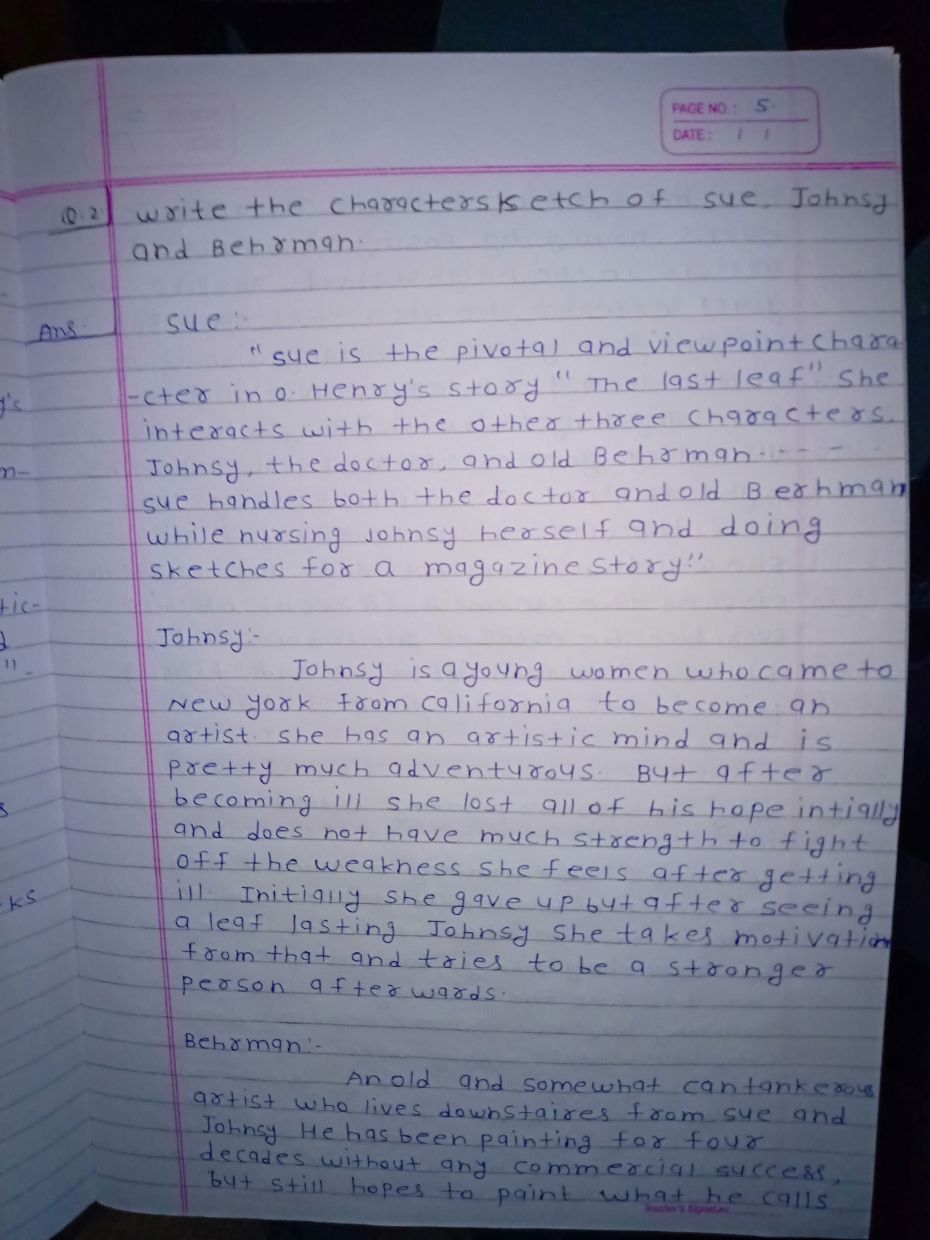 PAGE NO.: 5.
DATE: / /
Q.2. write the charactersketch of sue, Johnsy
and Behrman.
Ans. sue:-
"sue is the pivotal and viewpoint chara
-cter in o. Henry's story "The last leaf" She
interacts with the other three characters.
Johnsy, the doctor, and old Behrman - - - -
sue handles both the doctor and old Berhman
while nursing Johnsy herself and doing
sketches for a magazine story."
Johnsy:-
Johnsy is a young women who came to
New york from california to become an
artist. she has an artistic mind and is
pretty much adventurous. But after
becoming ill she lost all of his hope intially
and does not have much strength to fight
off the weakness she feels after getting
ill. Initially she gave up but after seeing
a leaf lasting Johnsy she takes motivation
from that and tries to be a stronger
person afterwards.
Behrman:-
An old and somewhat cantankerous
artist who lives downstaires from sue and
Johnsy He has been painting for four
decades without any commercial success,
but still hopes to paint what he calls
Teacher's Signature
y's
n-
tic-
d
"_
s
ks